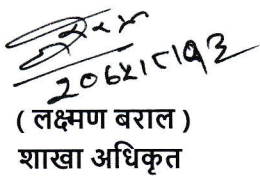 २०७५।८।१३
( लक्ष्मण बराल )
शाखा अधिकृत